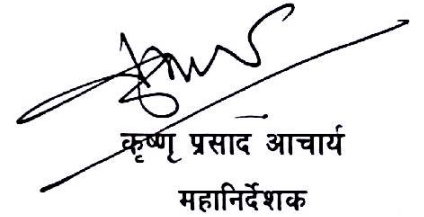 कृष्ण प्रसाद आचार्य
महानिर्देशक